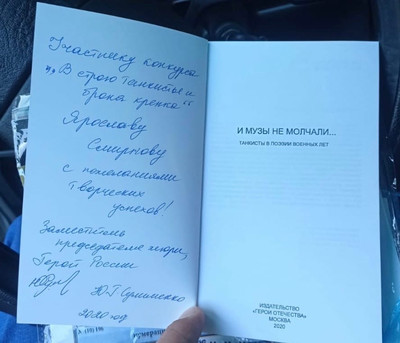 Участнику конкурса
„В строю танкисты и
броня крепка"
Ярославу
Смирнову
с пожеланиями
творческих
успехов!
Заместитель
председателя жюри,
Герой России
2020 год
И МУЗЫ НЕ МОЛЧАЛИ...
ТАНКИСТЫ В ПОЭЗИИ ВОЕННЫХ ЛЕТ
ИЗДАТЕЛЬСТВО
«ГЕРОИ ОТЕЧЕСТВА»
МОСКВА
2020